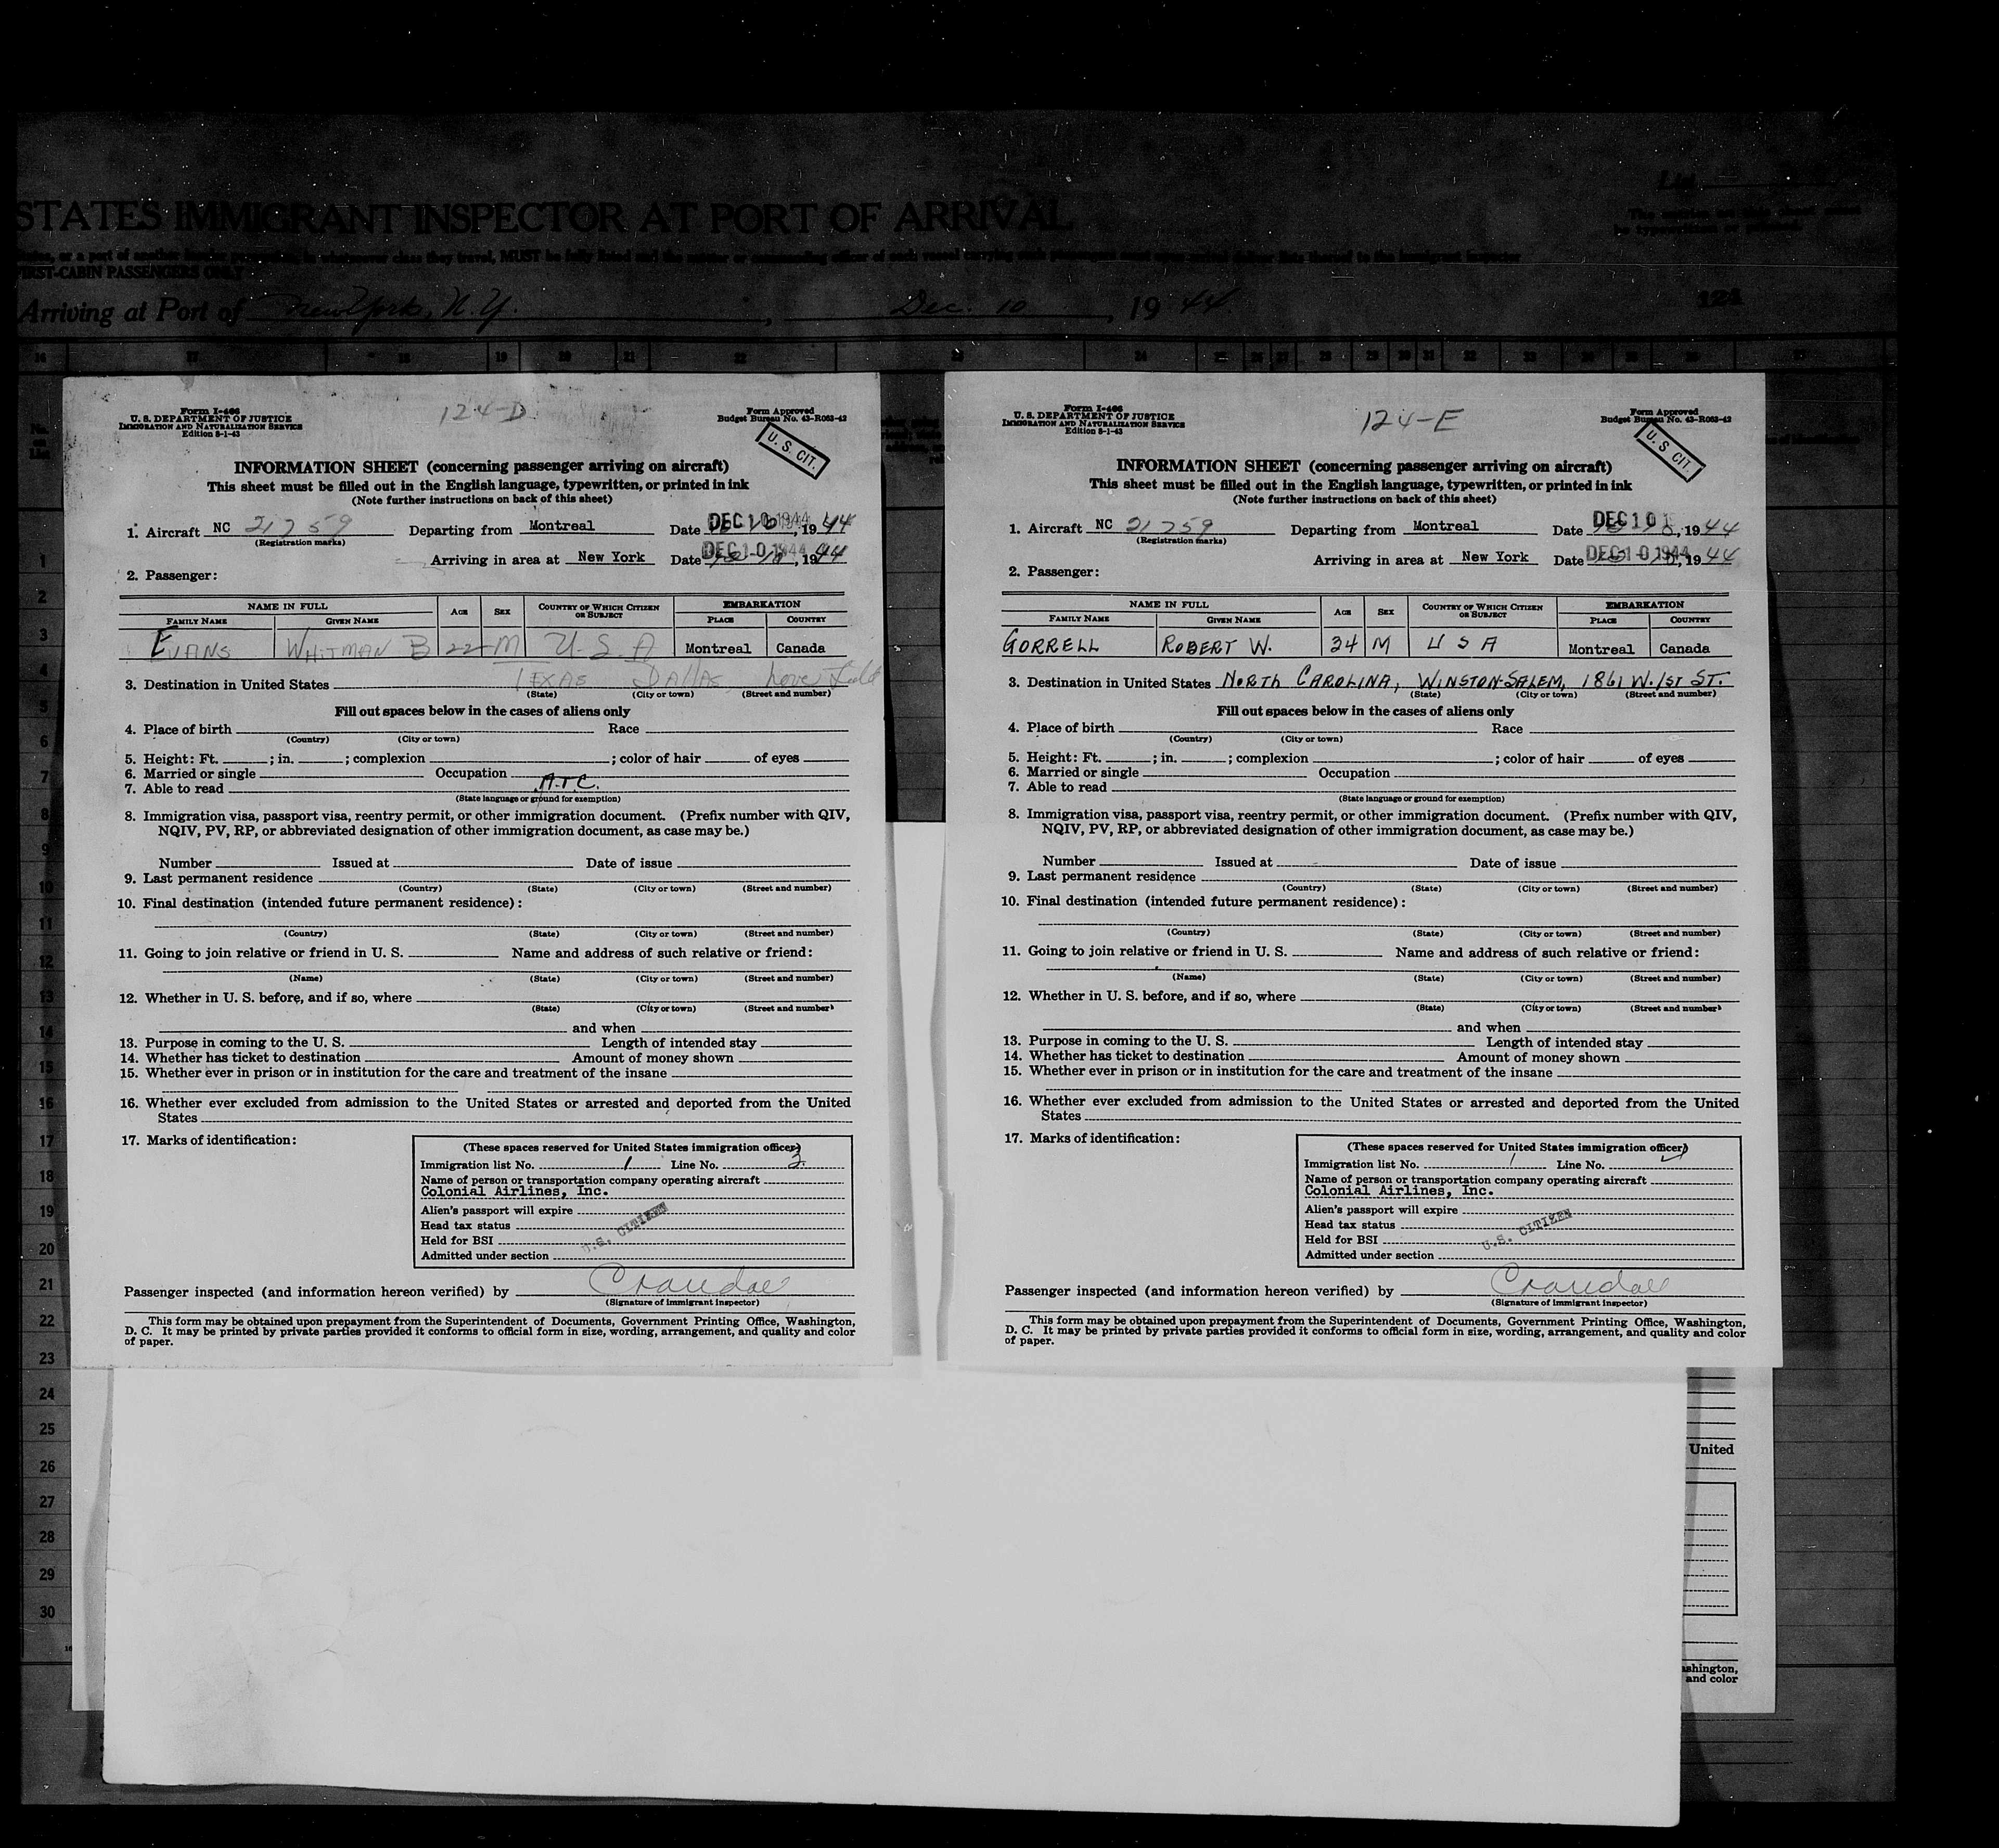 STATES IMMIGRANT INSPECTOR AT PORT OF ARRIVAL
FIRST-CABIN PASSENGERS ONLY
Arriving at Port of New York, N.Y. , Dec. 10 , 19 44
124
Form I-466
U. S. DEPARTMENT OF JUSTICE
IMMIGRATION AND NATURALIZATION SERVICE
Edition 8-1-43
124-D
Form Approved
Budget Bureau No. 43-R063-42
U. S. CIT.
INFORMATION SHEET (concerning passenger arriving on aircraft)
This sheet must be filled out in the English language, typewritten, or printed in ink
(Note further instructions on back of this sheet)
1. Aircraft NC 21759 Departing from Montreal Date DEC 10 1944, 1944
(Registration marks)
Arriving in area at New York Date DEC 10 1944, 1944
2. Passenger:
NAME IN FULL AGE SEX COUNTRY OF WHICH CITIZEN OR SUBJECT EMBARKATION
FAMILY NAME GIVEN NAME PLACE COUNTRY
EVANS WHITMAN B 22 M U.S.A Montreal Canada
3. Destination in United States TEXAS DALLAS Love Field
(State) (City or town) (Street and number)
Fill out spaces below in the cases of aliens only
4. Place of birth Race
(Country) (City or town)
5. Height: Ft. ; in. ; complexion ; color of hair of eyes
6. Married or single Occupation
7. Able to read A.T.C.
(State language or ground for exemption)
8. Immigration visa, passport visa, reentry permit, or other immigration document. (Prefix number with QIV,
NQIV, PV, RP, or abbreviated designation of other immigration document, as case may be.)
Number Issued at Date of issue
9. Last permanent residence
(Country) (State) (City or town) (Street and number)
10. Final destination (intended future permanent residence):
(Country) (State) (City or town) (Street and number)
11. Going to join relative or friend in U. S. Name and address of such relative or friend:
(Name) (State) (City or town) (Street and number)
12. Whether in U. S. before, and if so, where
(State) (City or town) (Street and number)
and when
13. Purpose in coming to the U. S. Length of intended stay
14. Whether has ticket to destination Amount of money shown
15. Whether ever in prison or in institution for the care and treatment of the insane
16. Whether ever excluded from admission to the United States or arrested and deported from the United
States
17. Marks of identification:
(These spaces reserved for United States immigration officer)
Immigration list No. 1 Line No. 3
Name of person or transportation company operating aircraft
Colonial Airlines, Inc.
Alien's passport will expire
Head tax status
Held for BSI U.S. CITIZEN
Admitted under section
Passenger inspected (and information hereon verified) by Crandall
(Signature of immigrant inspector)
This form may be obtained upon prepayment from the Superintendent of Documents, Government Printing Office, Washington,
D. C. It may be printed by private parties provided it conforms to official form in size, wording, arrangement, and quality and color
of paper.
Form I-466
U. S. DEPARTMENT OF JUSTICE
IMMIGRATION AND NATURALIZATION SERVICE
Edition 8-1-43
124-E
Form Approved
Budget Bureau No. 43-R063-42
U. S. CIT.
INFORMATION SHEET (concerning passenger arriving on aircraft)
This sheet must be filled out in the English language, typewritten, or printed in ink
(Note further instructions on back of this sheet)
1. Aircraft NC 21759 Departing from Montreal Date DEC 10 1, 1944
(Registration marks)
Arriving in area at New York Date DEC 10 1944, 1944
2. Passenger:
NAME IN FULL AGE SEX COUNTRY OF WHICH CITIZEN OR SUBJECT EMBARKATION
FAMILY NAME GIVEN NAME PLACE COUNTRY
GORRELL ROBERT W. 34 M U S A Montreal Canada
3. Destination in United States NORTH CAROLINA, WINSTON-SALEM, 1861 W. 1ST ST.
(State) (City or town) (Street and number)
Fill out spaces below in the cases of aliens only
4. Place of birth Race
(Country) (City or town)
5. Height: Ft. ; in. ; complexion ; color of hair of eyes
6. Married or single Occupation
7. Able to read
(State language or ground for exemption)
8. Immigration visa, passport visa, reentry permit, or other immigration document. (Prefix number with QIV,
NQIV, PV, RP, or abbreviated designation of other immigration document, as case may be.)
Number Issued at Date of issue
9. Last permanent residence
(Country) (State) (City or town) (Street and number)
10. Final destination (intended future permanent residence):
(Country) (State) (City or town) (Street and number)
11. Going to join relative or friend in U. S. Name and address of such relative or friend:
(Name) (State) (City or town) (Street and number)
12. Whether in U. S. before, and if so, where
(State) (City or town) (Street and number)
and when
13. Purpose in coming to the U. S. Length of intended stay
14. Whether has ticket to destination Amount of money shown
15. Whether ever in prison or in institution for the care and treatment of the insane
16. Whether ever excluded from admission to the United States or arrested and deported from the United
States
17. Marks of identification:
(These spaces reserved for United States immigration officer)
Immigration list No. 1 Line No.
Name of person or transportation company operating aircraft
Colonial Airlines, Inc.
Alien's passport will expire
Head tax status
Held for BSI U.S. CITIZEN
Admitted under section
Passenger inspected (and information hereon verified) by Crandall
(Signature of immigrant inspector)
This form may be obtained upon prepayment from the Superintendent of Documents, Government Printing Office, Washington,
D. C. It may be printed by private parties provided it conforms to official form in size, wording, arrangement, and quality and color
of paper.
United
ashington,
and color
1
2
3
4
5
6
7
8
9
10
11
12
13
14
15
16
17
18
19
20
21
22
23
24
25
26
27
28
29
30